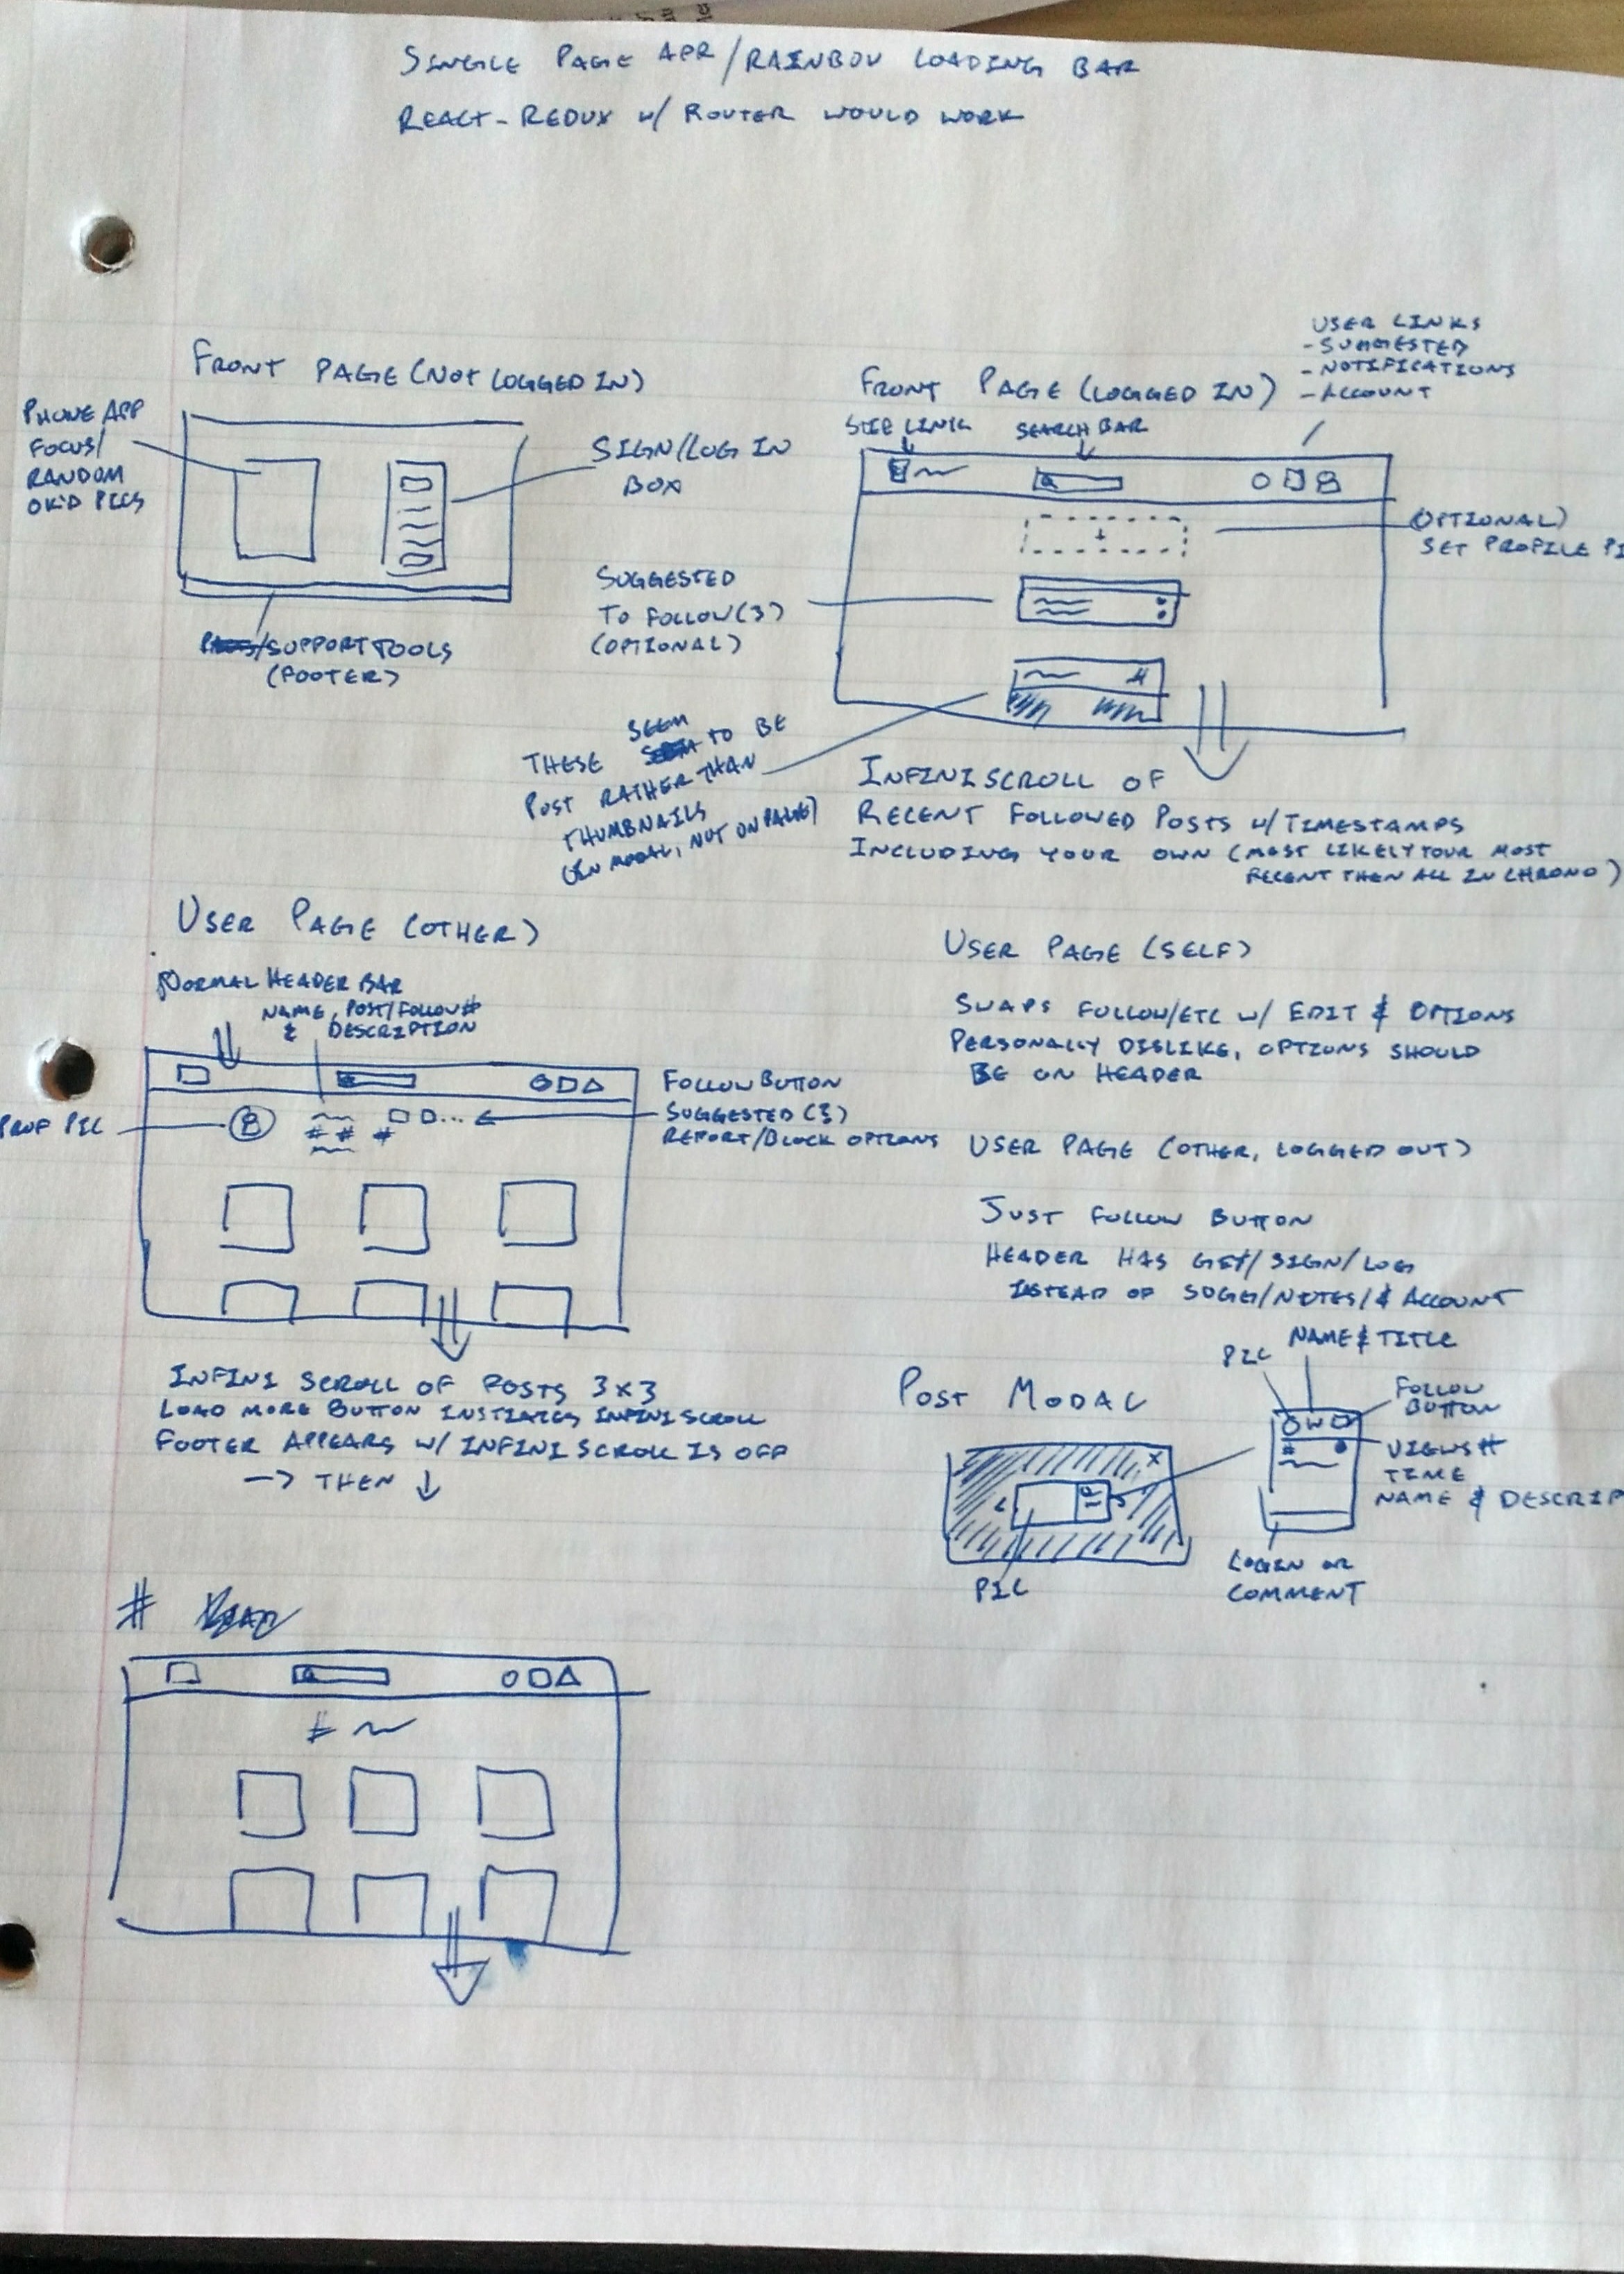 SINGLE PAGE APP/RAINBOW LOADING BAR
REACT-REDUX W/ ROUTER WOULD WORK
FRONT PAGE (NOT LOGGED IN)
PHONE APP
FOCUS/
RANDOM
PICS
SIGN/LOG IN
BOX
/SUPPORT TOOLS
(FOOTER)
FRONT PAGE (LOGGED IN)
USER LINKS
- SUGGESTED
- NOTIFICATIONS
- ACCOUNT
SITE LINK
SEARCH BAR
(OPTIONAL)
SET PROFILE PI
SUGGESTED
TO FOLLOW (3)
(OPTIONAL)
THESE SEEM TO BE
POST RATHER THAN
THUMBNAILS
(IN MODAL, NOT ON PAGE)
INFINISCROLL OF
RECENT FOLLOWED POSTS W/TIMESTAMPS
INCLUDING YOUR OWN (MOST LIKELY YOUR MOST
RECENT THEN ALL IN CHRONO)
USER PAGE (OTHER)
NORMAL HEADER BAR
NAME, POST/FOLLOW #
& DESCRIPTION
PROF PIC
FOLLOW BUTTON
SUGGESTED (3)
REPORT/BLOCK OPTIONS
# # #
INFINI SCROLL OF POSTS 3X3
LOAD MORE BUTTON INSTIATES INFINISCROLL
FOOTER APPEARS W/ INFINISCROLL IS OFF
→ THEN ↓
USER PAGE (SELF)
SWAPS FOLLOW/ETC W/ EDIT & OPTIONS
PERSONALLY DISLIKE, OPTIONS SHOULD
BE ON HEADER
USER PAGE (OTHER, LOGGED OUT)
JUST FOLLOW BUTTON
HEADER HAS GET/SIGN/LOG
INSTEAD OF SUGG/NOTES/& ACCOUNT
POST MODAL
X
PIC
PIC
NAME & TITLE
FOLLOW
BUTTON
VIEWS #
TIME
NAME & DESCRIP
#
LOGIN OR
COMMENT
#
#